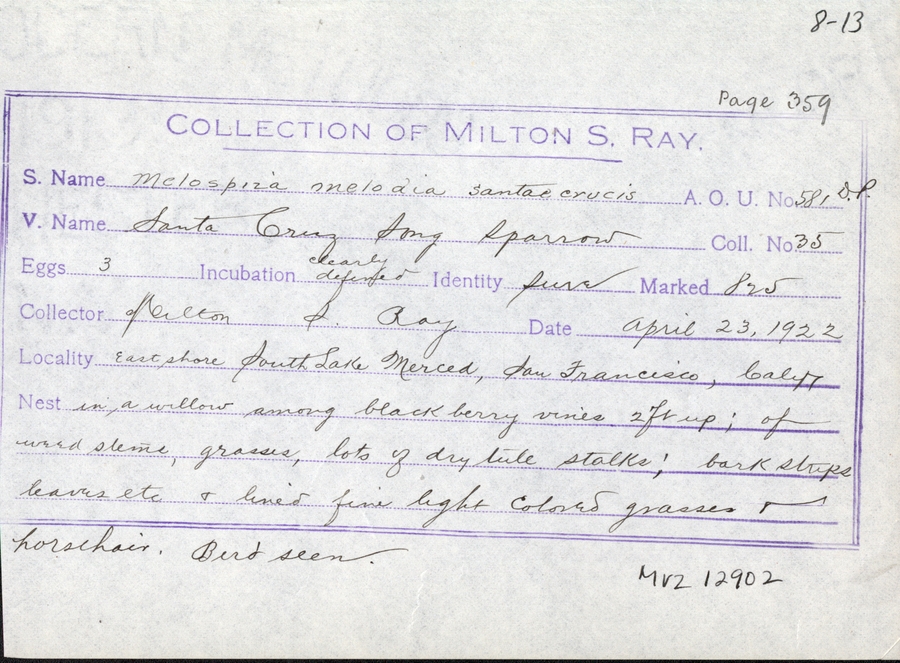 8-13
Page 359
COLLECTION OF MILTON S. RAY.
S. Name Melospiza melodia santae crucis A. O. U. No. 581 D.P.
V. Name Santa Cruz Song Sparrow Coll. No. 35
Eggs 3 Incubation clearly defined Identity sure Marked 825
Collector Milton S. Ray Date April 23, 1922
Locality East shore South Lake Merced, San Francisco, Calif
Nest in a willow among blackberry vines 2ft up; of
weed stems, grasses, lots of dry tule stalks; bark strips
leaves etc & lined fine light colored grasses &
horsehair. Bird seen.
MVZ 12902